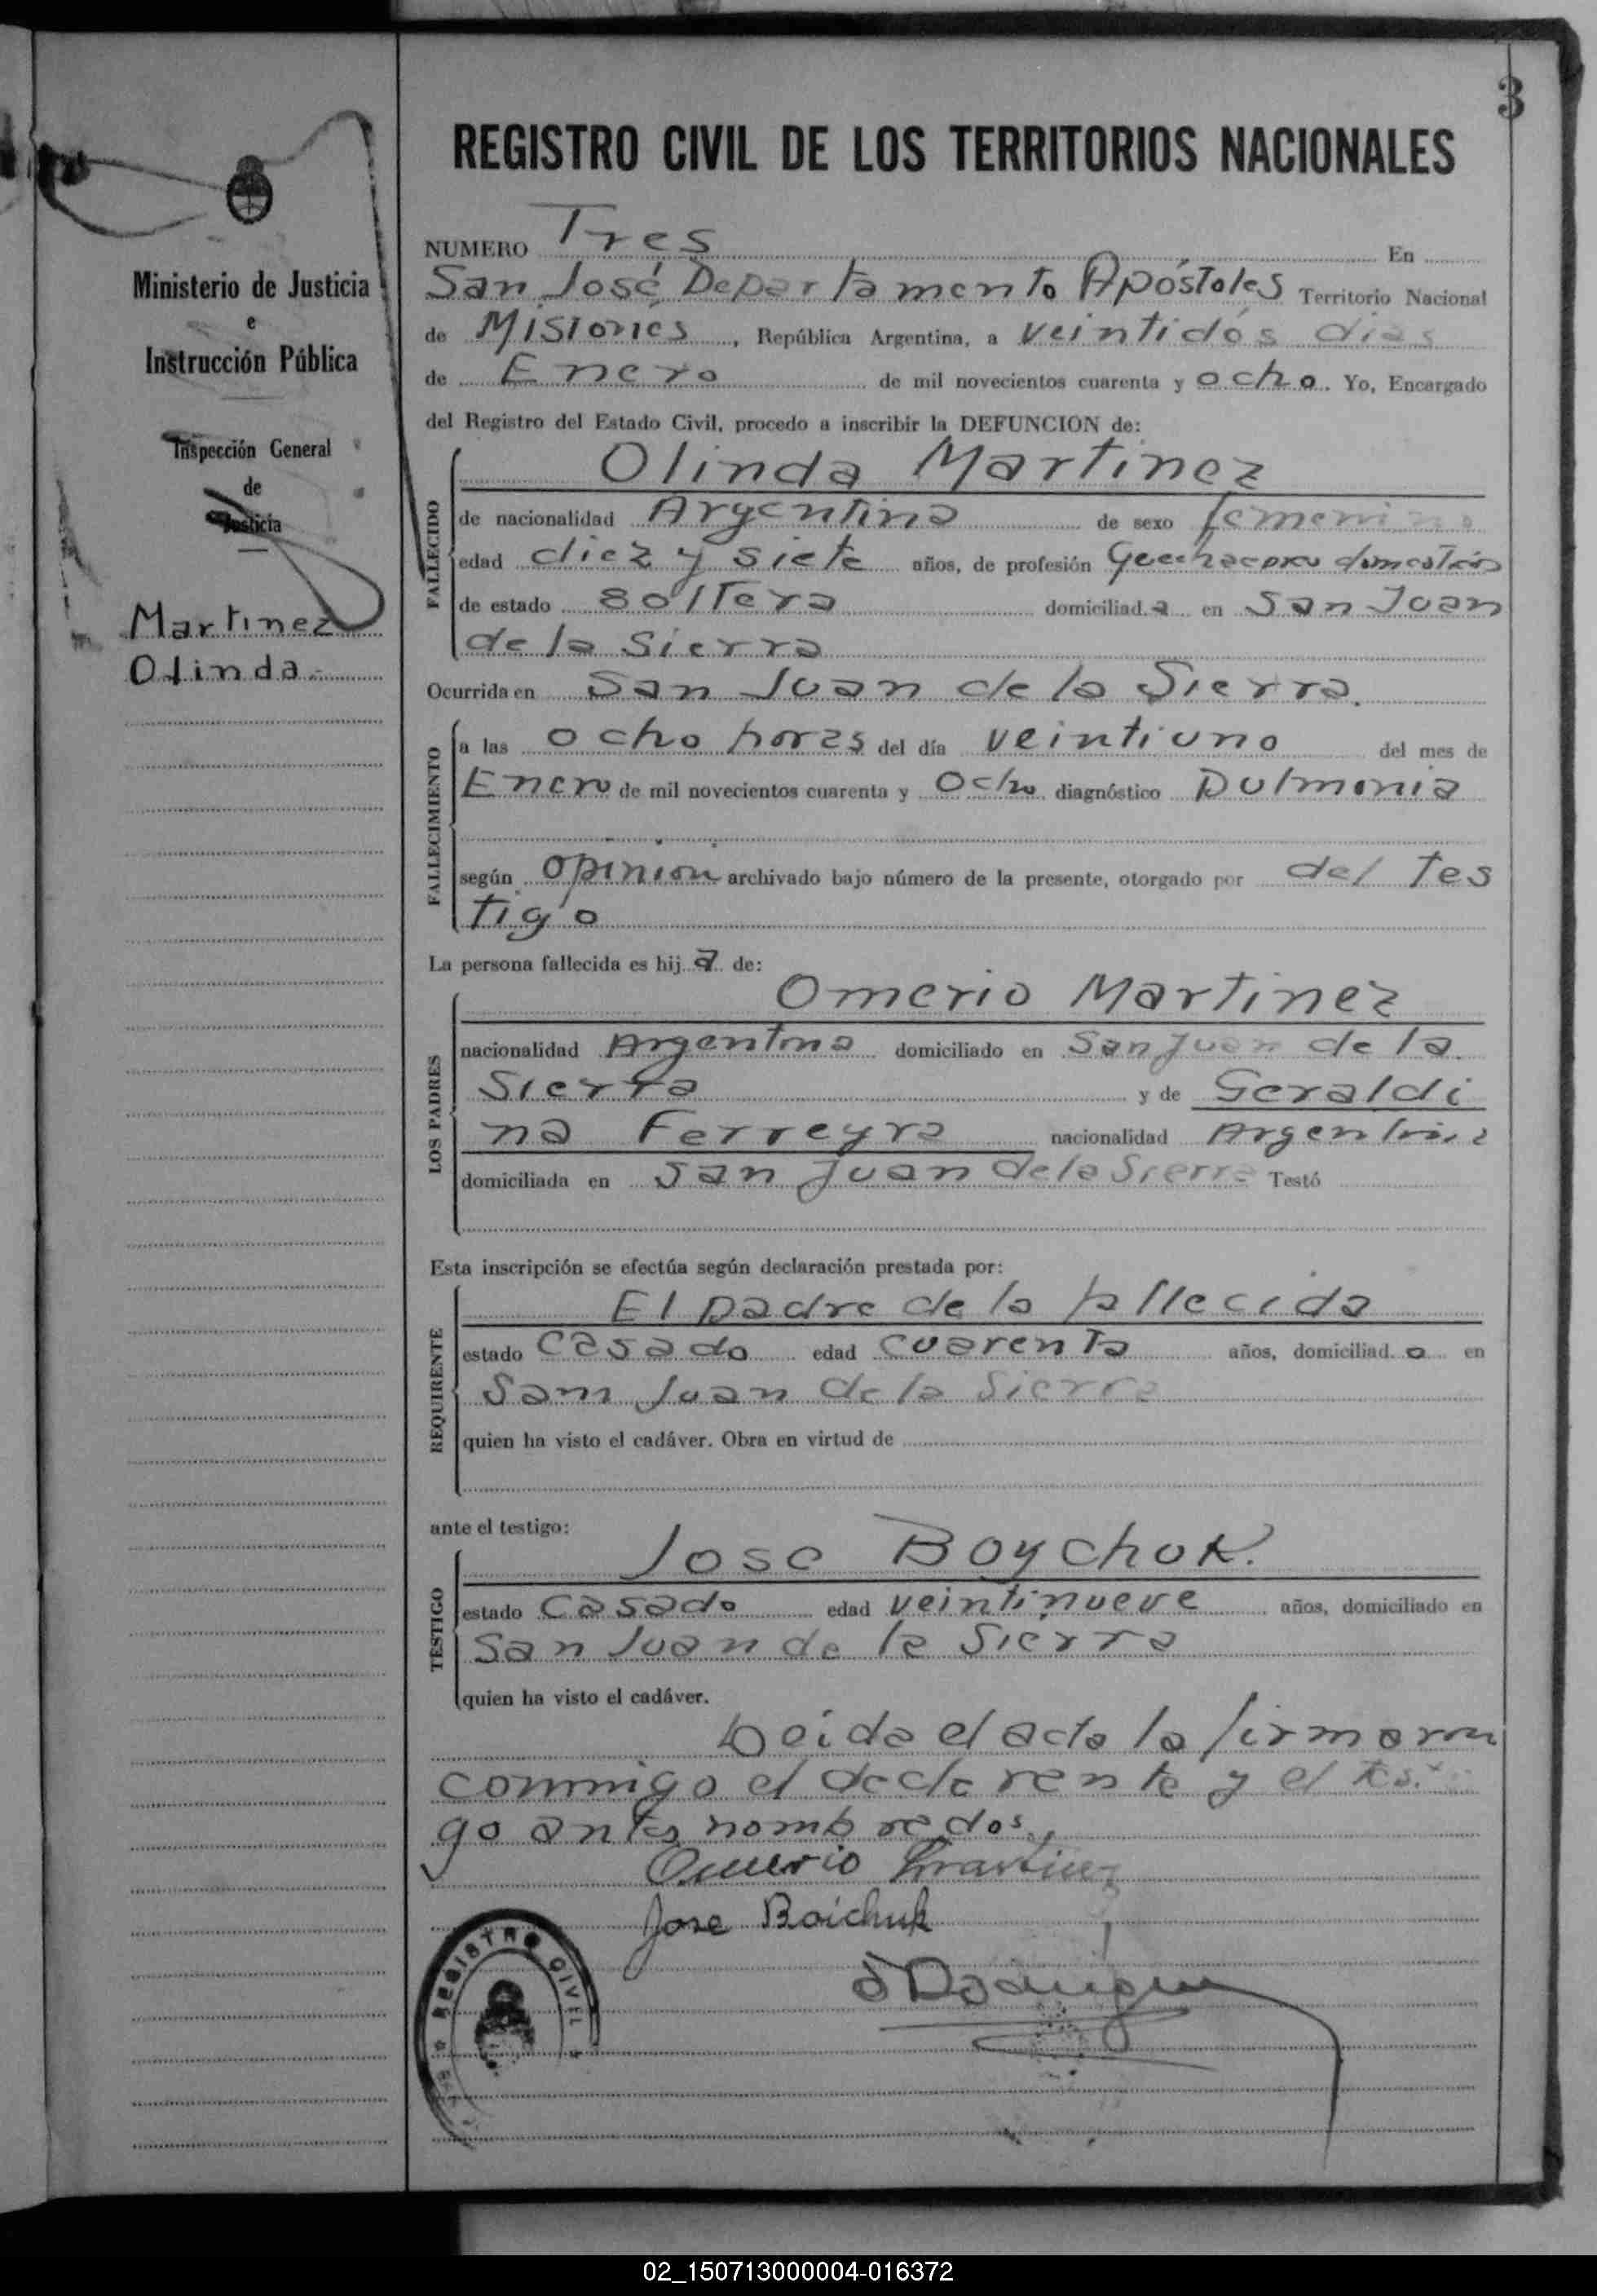 3
REGISTRO CIVIL DE LOS TERRITORIOS NACIONALES
Ministerio de Justicia
e
Instrucción Pública
Inspección General
de
Justicia
Martinez
Olinda
NUMERO Tres En
San José Departamento Apóstoles Territorio Nacional
de Misiones, República Argentina, a veintidós días
de Enero de mil novecientos cuarenta y ocho. Yo, Encargado
del Registro del Estado Civil, procedo a inscribir la DEFUNCION de:
FALLECIDO
Olinda Martinez
de nacionalidad Argentina de sexo femenino
edad diez y siete años, de profesión domesticos
de estado soltera domiciliad a en San Juan
de la Sierra
Ocurrida en San Juan de la Sierra.
FALLECIMIENTO
a las ocho horas del día veintiuno del mes de
Enero de mil novecientos cuarenta y Ocho diagnóstico Pulmonia
según opinion archivado bajo número de la presente, otorgado por del tes
tigo
La persona fallecida es hij a de:
LOS PADRES
Omerio Martinez
nacionalidad Argentina domiciliado en San Juan de la
Sierra y de Geraldi
na Ferreyra nacionalidad Argentina
domiciliada en San Juan de la Sierra Testó
Esta inscripción se efectúa según declaración prestada por:
REQUIRENTE
El padre de la fallecida
estado casado edad cuarenta años, domiciliad o en
San Juan de la Sierra
quien ha visto el cadáver. Obra en virtud de
ante el testigo:
TESTIGO
Jose Boychuk.
estado casado edad veintinueve años, domiciliado en
San Juan de la Sierra
quien ha visto el cadáver.
Leida el acta la firmaron
conmigo el declarente y el testi
go antes nombrados
Omerio Martinez
Jose Boichuk
REGISTRO CIVIL
02_150713000004-016372